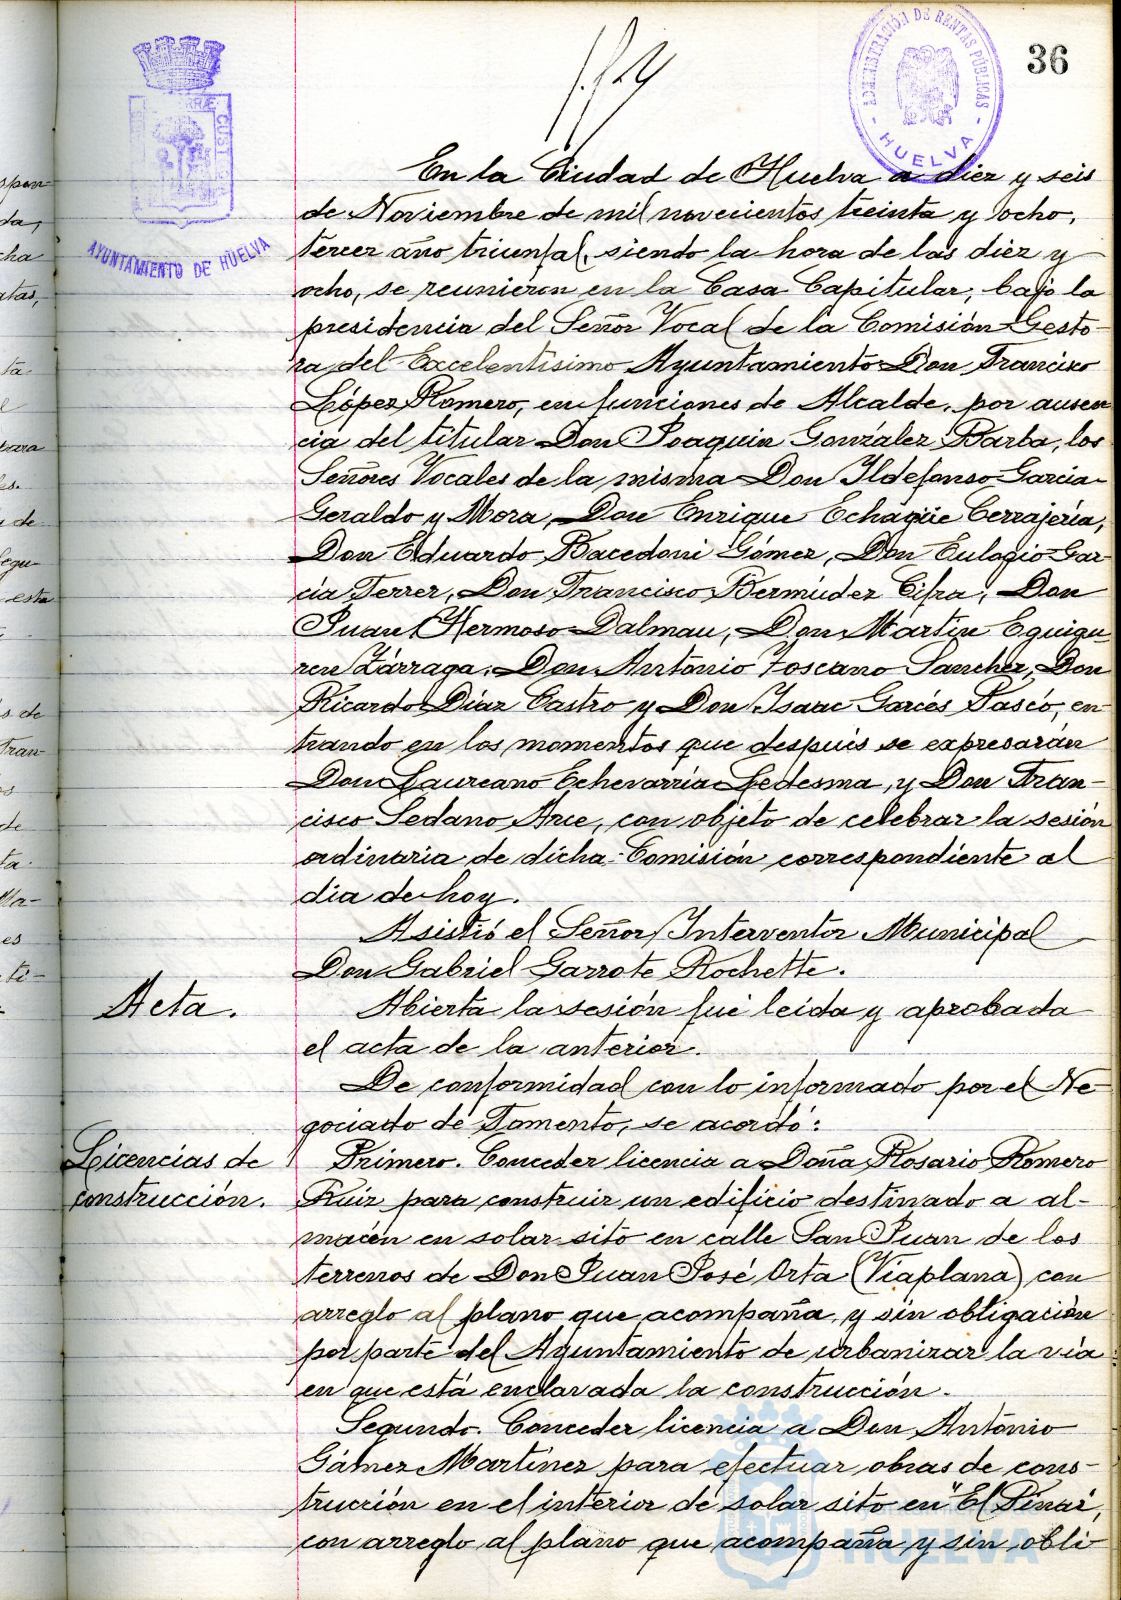 36
ADMINISTRACIÓN DE RENTAS PÚBLICAS
- HUELVA -
AYUNTAMIENTO DE HUELVA
En la Ciudad de Huelva a diez y seis
de Noviembre de mil novecientos treinta y ocho,
tercer año triunfal, siendo la hora de las diez y
ocho, se reunieron en la Casa Capitular, bajo la
presidencia del Señor Vocal de la Comisión Gesto-
ra del Excelentísimo Ayuntamiento Don Francisco
López Romero, en funciones de Alcalde, por ausen
cia del titular Don Joaquin González Barba, los
Señores Vocales de la misma Don Ildefonso Garcia
Geraldo y Mora, Don Enrique Echagüe Cerrajería,
Don Eduardo Bacedoni Gómez, Don Eulogio Gar-
cía Ferrer, Don Francisco Bermúdez Cifra, Don
Juan Hermoso Dalmau, Don Martín Eguigu-
ren Zárraga, Don António Toscano Sanchez, Don
Ricardo Díaz Castro y Don Isaac Garcés Pascó, en-
trando en los momentos que después se expresarán
Don Laureano Echevarría Ledesma, y Don Fran-
cisco Sedano Arce, con objeto de celebrar la sesión
ordinaria de dicha Comisión correspondiente al
dia de hoy.
Asistió el Señor Interventor Municipal
Don Gabriel Garrote Rochette.
Acta.
Abierta la sesión fué leida y aprobada
el acta de la anterior.
De conformidad con lo informado por el Ne-
gociado de Fomento, se acordó:
Licencias de
construcción.
Primero. Conceder licencia a Doña Rosario Romero
Ruiz para construir un edificio destinado a al-
macén en solar sito en calle San Juan de los
terrenos de Don Juan José Orta (Viaplana) con
arreglo al plano que acompaña, y sin obligación
por parte del Ayuntamiento de urbanizar la vía
en que está enclavada la construcción.
Segundo. Conceder licencia a Don António
Gámez Martínez para efectuar obras de cons-
trucción en el interior de solar sito en "El Pinar",
con arreglo al plano que acompaña y sin obli-
HUELVA